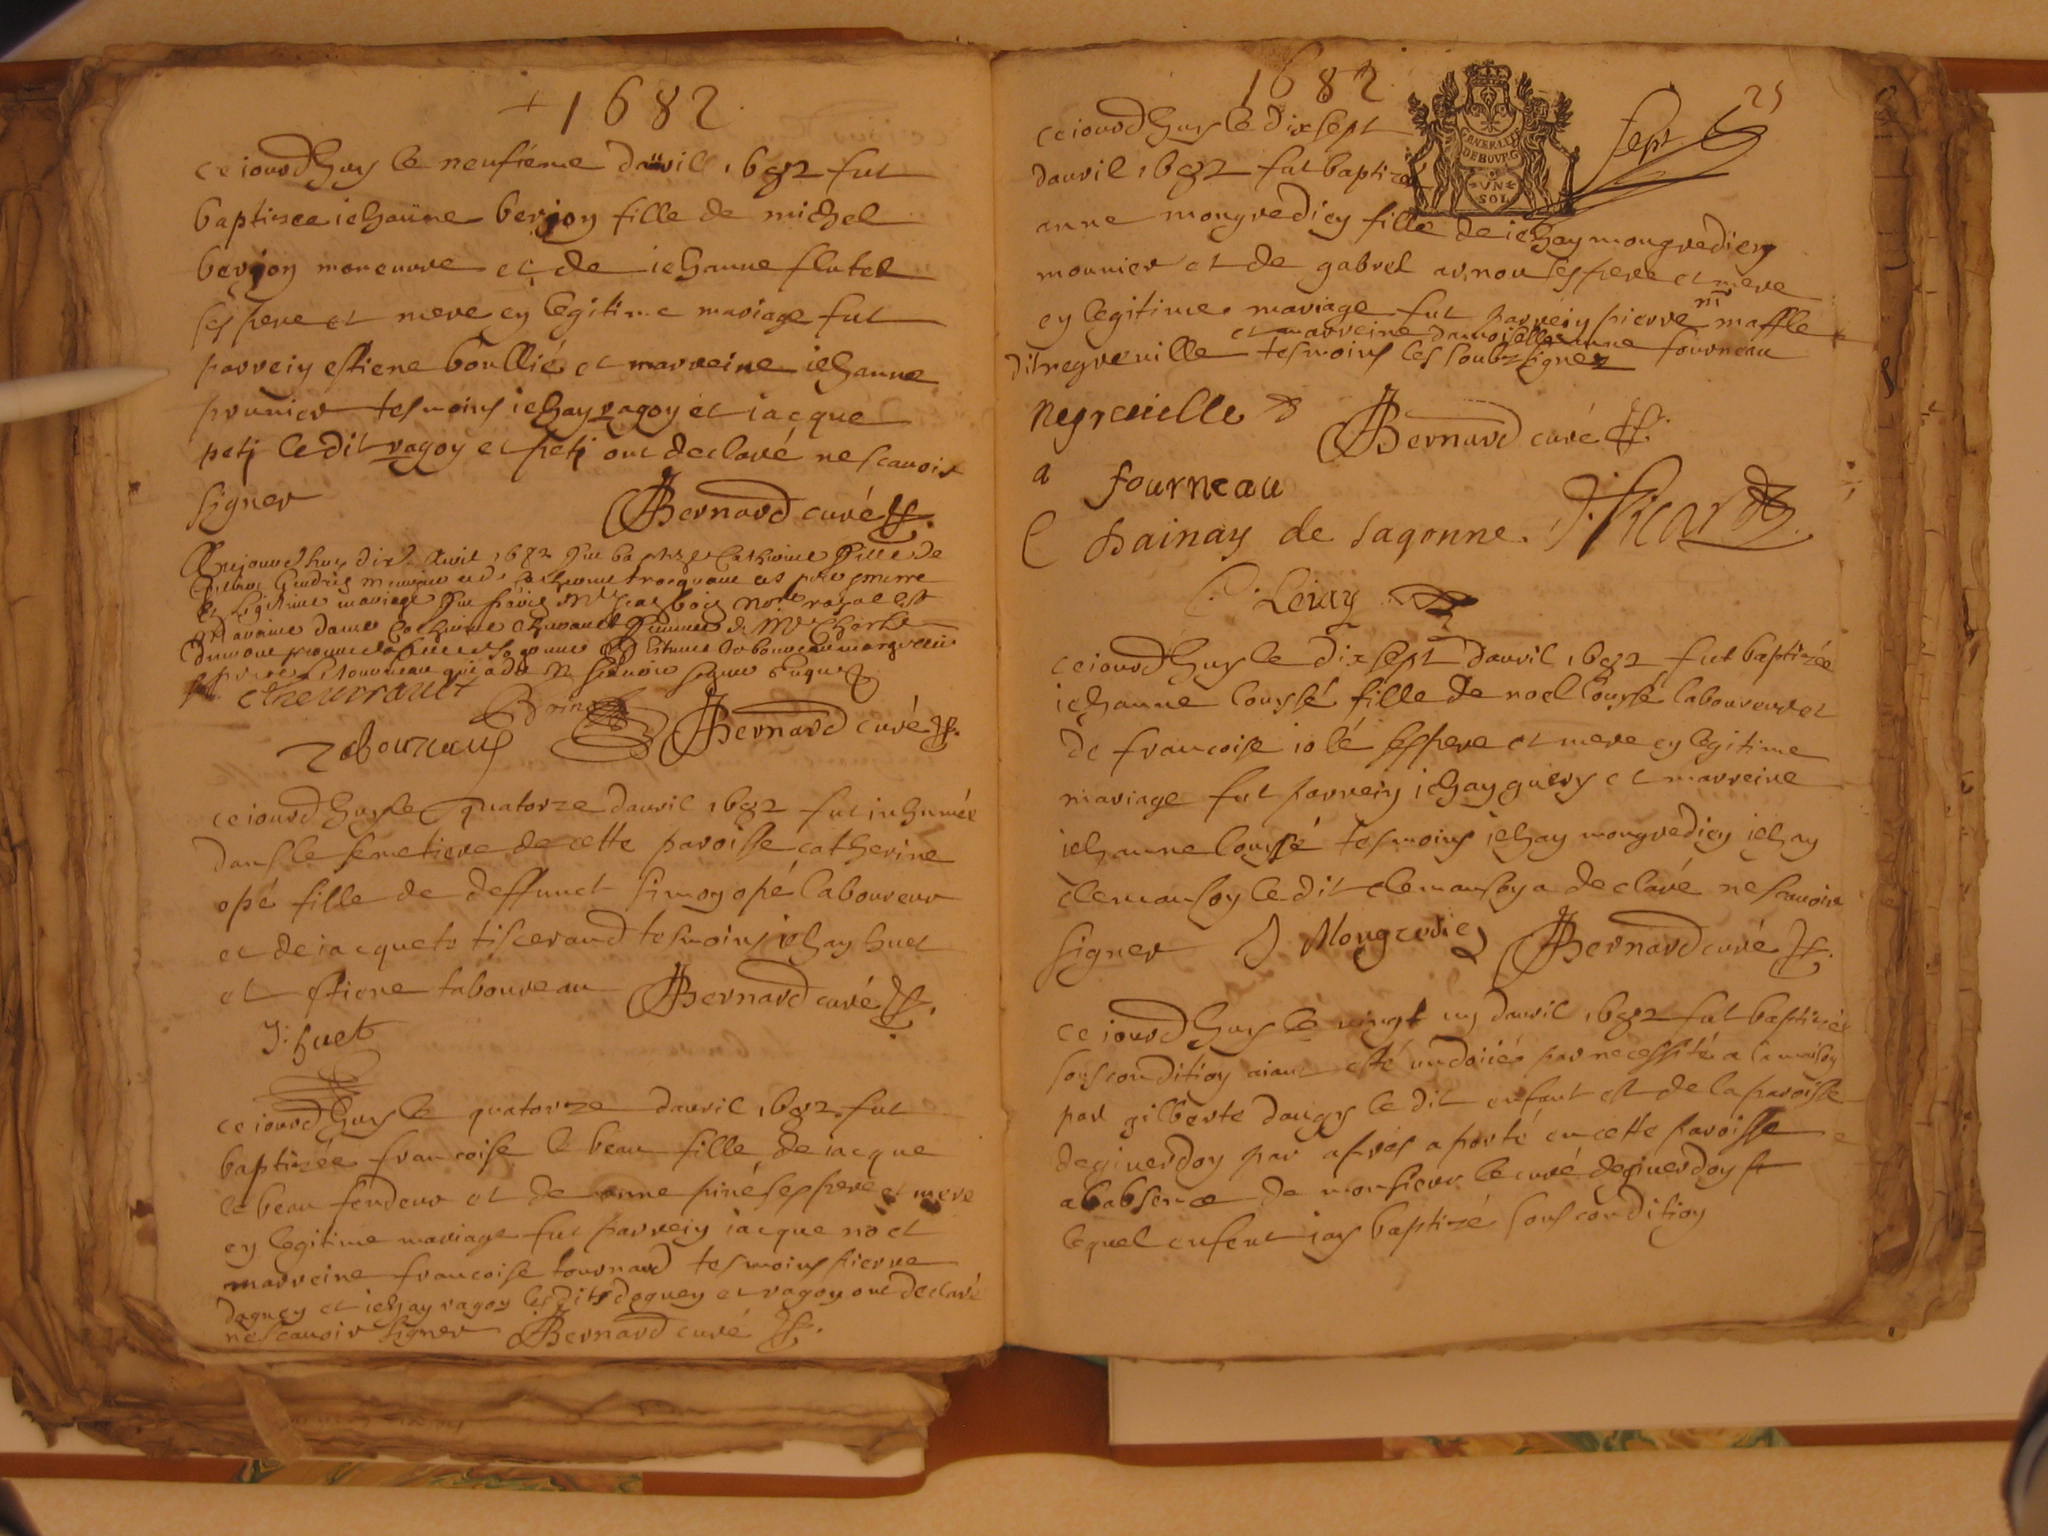 + 1682
ce iourdhuy le neufieme dauvil 1682 fut
baptisee iehanne berjon fille de michel
berjon moneuvre et de iehanne flutet
ses pere et mere en legitime mariage fut
parrein estiene boullié et marreine iehanne
prunier tesmoins iehan ragon et iacque
peti ledit ragon et peti ont declaré ne scavoir
signer Bernard curé
Aujourdhuy dix Avril 1682 fut baptizé Catherine fille de
et legitime mariage fut
dame Catherine
cheurrault
Bernard curé
ce iourdhuy le quatorze davril 1682 fut inhumée
dans le semetiere de cette paroisse catherine
opé fille de deffunct simon opé laboureur
et de iacquete tiscerand tesmoins iehan huet
et estiene taboureau Bernard curé
J. huet
ce iourdhuy le quatorze davril 1682 fut
baptizée francoise le beau fille de iacque
le beau fendeur et de anne piné ses pere et mere
en legitime mariage fut parrein iacque noel
marreine francoise tournard tesmoins pierre
daguey et iehan ragon les dits daguey et ragon ont declaré
ne scavoir signer Bernard curé
1682 25
GNERLITE
DE BOURG
UN
SOL
sept
ce iourdhuy le dix sept
davril 1682 fut baptizée
anne mongredien fille de iehan mongredien
mounier et de gabrel arnou ses pere et mere
en legitime mariage fut parrein pierre maffle
et marreine damoiselle anne fourneau
dit negreville tesmoins les soubzsignez
Negreville Bernard curé
a fourneau
C hainay de sagonne. Picard
C. Leray
ce iourdhuy le dix sept davril 1682 fut baptizée
iehanne loussé fille de noel loussé laboureur et
de francoise iolé ses pere et mere en legitime
mariage fut parrein iehan guery et marreine
iehanne loussé tesmoins iehan mongredien iehan
clemanson le dit clemanson a declaré ne scavoir
signer J Mongredien Bernard curé
ce iourdhuy le vingt un davril 1682 fut baptizée
sous condition aiant esté undoiiée par necessité a la maison
par gilberte daugy le dit enfant est de la paroisse
de giuerdon par apres aporté en cette paroisse
ab absence de monsieur le curé de giuerdon
lequel enfent iay baptizé sous condition